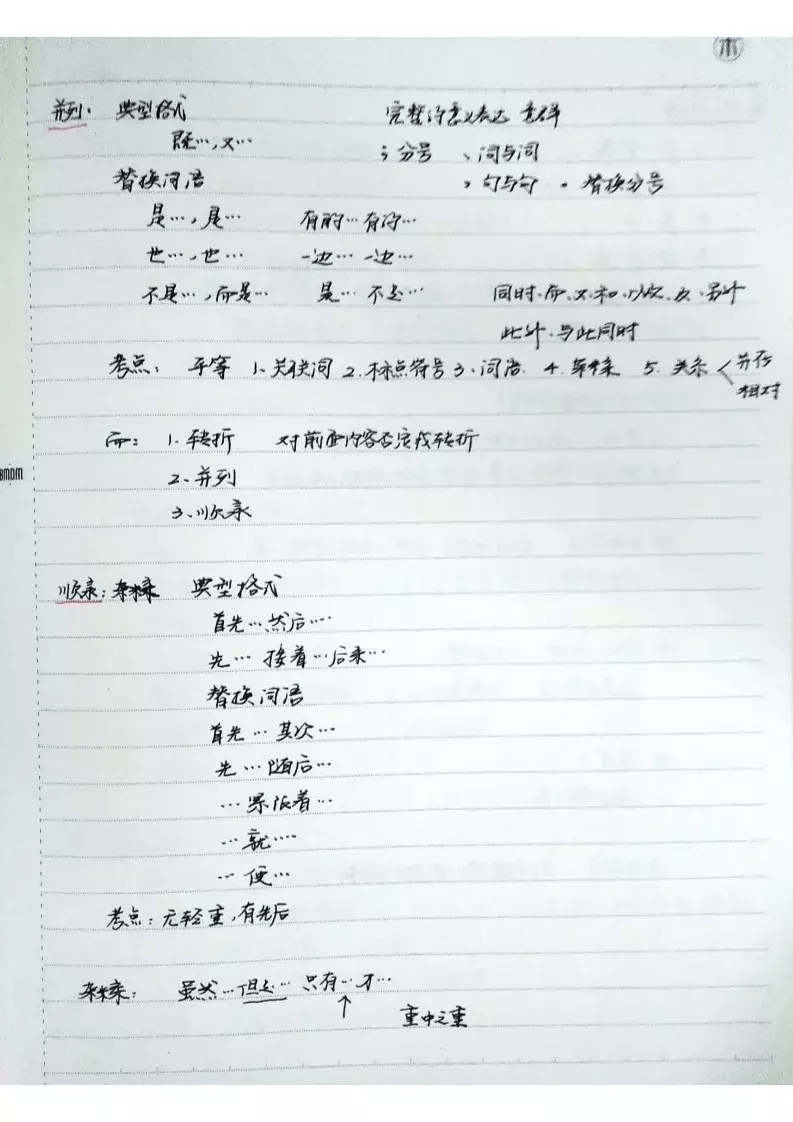 并列. 典型格式 完整的意义表达 意群
既…,又… ;分号 、词与词
替换词语 ,句与句 。替换分号
是…,是… 有的…有的…
也…,也… 一边…一边…
不是…,而是… 是…不是… 同时.而.又.和.以及.及.另外
此外.与此同时
考点: 平等 1.关联词 2.标点符号 3.词语. 4. 5. 关系 并存
相对
而: 1.转折 对前面内容否定或转折
2.并列
3.顺承
顺承: 典型格式
首先…然后…
先…接着…后来…
替换词语
首先…其次…
先…随后…
…紧跟着…
…就…
…便…
考点:无轻重,有先后
虽然…但是…只有…才…
↑ 重中之重